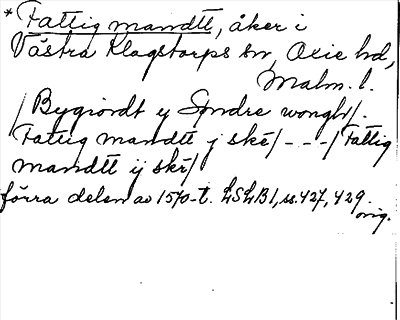 * Fattig mandtt, åker i
Västra Klagstorps sn, Oxie hd,
Malm. l.
/ Bygiordt y Søndre wongh/.
Fattig mandtt y skē/ - - -/ Fattig
mandtt ij skē/
förra delen av 1570-t. LSLB1, ss. 427, 429.
orig.